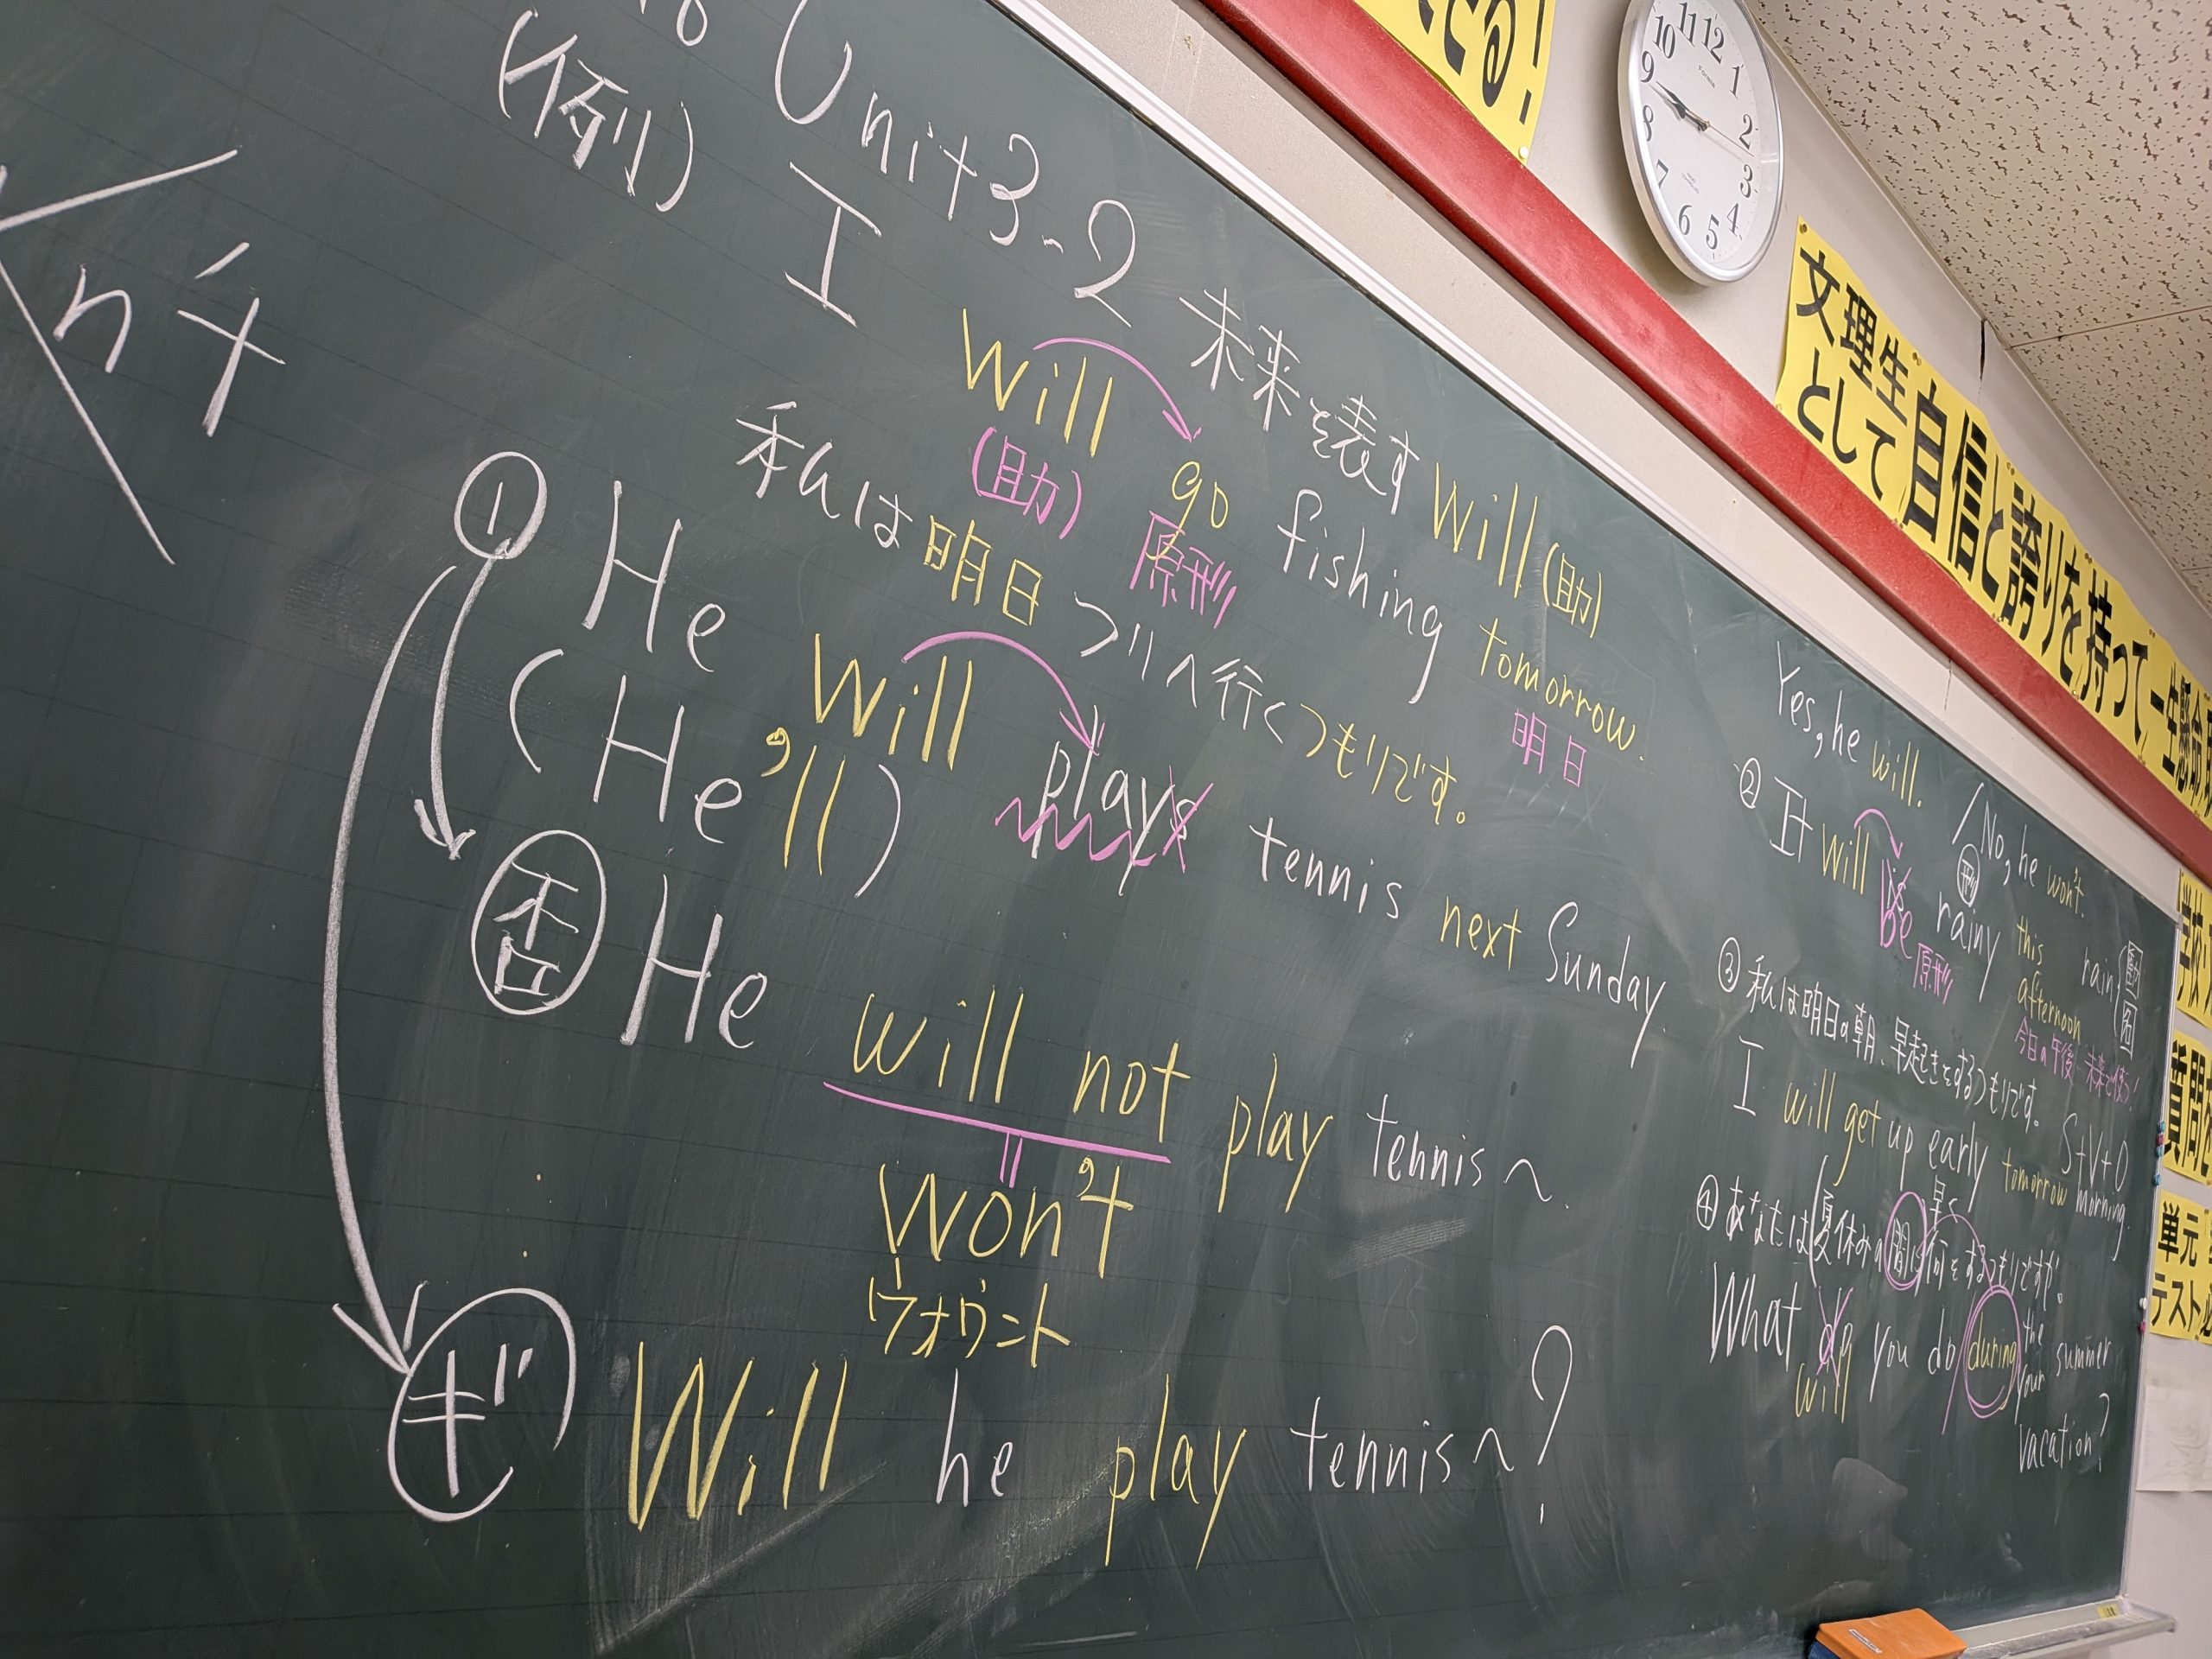 Unit3-2 未来を表す Will (助)
(例) I Will go fishing tomorrow.
(助) 原形 明日
私は明日つりへ行くつもりです。
① He Will plays tennis next Sunday.
(He'll)
否 He will not play tennis〜.
won't
ウォウント
ギ Will he play tennis〜?
n't
Yes, he will. / No, he won't.
② It will is rainy this afternoon
be 原形
形
今日の午後 未来を使う!
rain 動 名
③ 私は明日の朝、早起きをするつもりです。
S+V+O
I will get up early tomorrow morning.
早く
④ あなたは夏休みの間に何をするつもりですか。
What do you do during the summer
will your
vacation?
12 1 2 3 4 5 6 7 8 9 10 11
文理生として自信と誇りを持って一生懸命
質問
単元
テスト